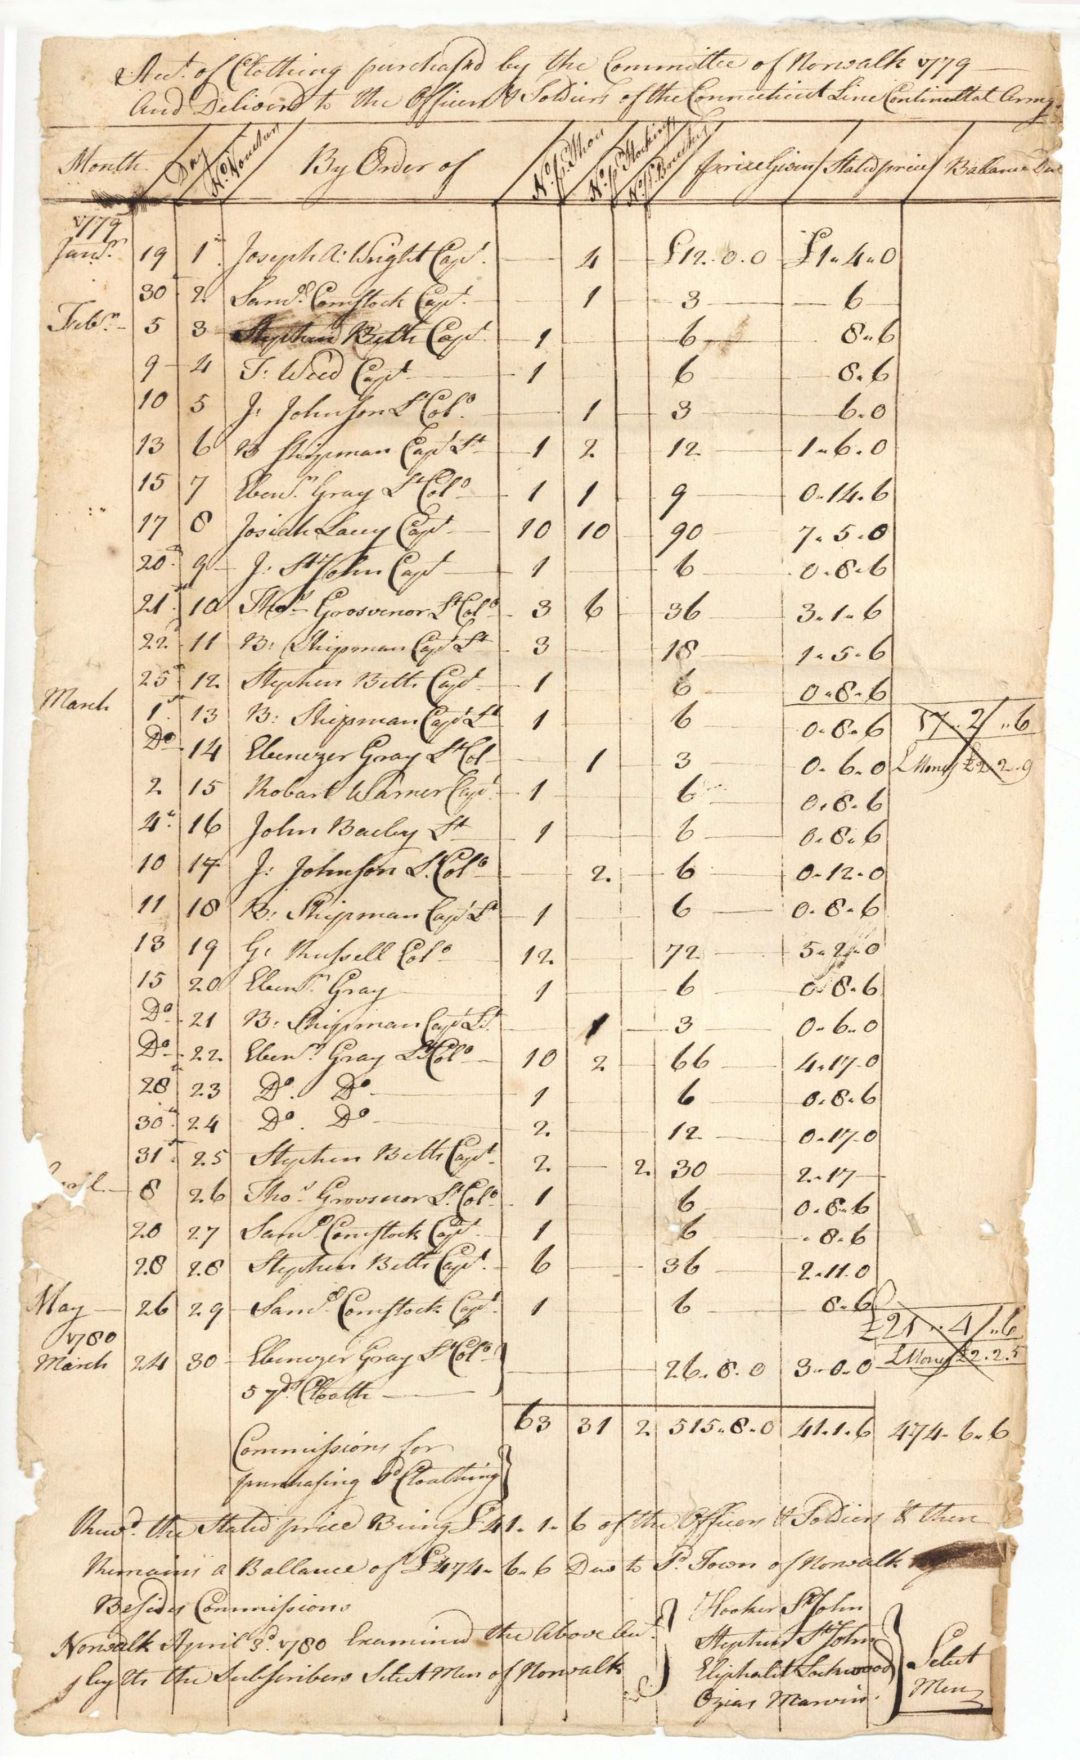 Acct. of Clothing purchased by the Committee of Norwalk 1779
And Deliverd to the Officers & Soldiers of the Connecticut Line Continettal Army
Month Day No. Voucher By Order of No. pr Shoes No. pr Stockings No. pr Breeches price Given Stated price Ballance Due
1779
Janry. 19 1 Joseph A: Wright Capt. 4 £12.0.0 £1.4.0
30 2 Saml. Comstock Capt. 1 3 6
Febry. 5 3 Stephen Betts Capt. 1 6 8.6
9 4 T: Weed Capt. 1 6 8.6
10 5 J: Johnson Lt Colo. 1 3 6.0
13 6 B Shipman Capt Lt 1 2 12 1.6.0
15 7 Ebenr. Gray Lt Colo 1 1 9 0.14.6
17 8 Josiah Lacey Capt. 10 10 90 7.5.0
20th 9 J: St John Capt 1 6 0.8.6
21st 10 Thos. Grosvenor Lt Colo 3 6 36 3.1.6
22d 11 B: Shipman Capt Lt 3 18 1.5.6
25th 12 Stephen Betts Capt 1 6 0.8.6
March 1st 13 B: Shipman Capt Lt 1 6 0.8.6 17..2/..6
Do 14 Ebenezer Gray Lt Col 1 3 0.6.0 L Money £2.2.9
2 15 Robart Warner Capt. 1 6 0.8.6
4th 16 John Baeley Lt 1 6 0.8.6
10 17 J: Johnson L. Colo 2 6 0.12.0
11 18 B: Shipman Capt Lt 1 6 0.8.6
13 19 G: Russell Colo 12 72 5.2.0
15 20 Ebenr. Gray 1 6 0.8.6
Do 21 B: Shipman Capt Lt. 1 3 0.6.0
Do 22 Ebenr. Gray Lt Colo 10 2 66 4.17.0
28th 23 Do. Do. 1 6 0.8.6
30th 24 Do. Do. 2 12 0.17.0
31st 25 Stephen Betts Capt. 2 2 30 2.17
8 26 Thos Grovsenor Lt Colo 1 6 0.8.6
20 27 Saml Comstock Capt. 1 6 .8.6
28 28 Stephen Betts Capt. 6 36 2.11.0
May 26 29 Saml. Comstock Capt. 1 6 8.6
£21..4/..6
1780
March 24 30 Ebenezer Gray Lt Colo 26.8.0 3.0.0 L Money £2.2.5
5 yds. Cloath
63 31 2 515.8.0 41.1.6 474.6.6
Commissions for
purchasing Sd Cloathing
Recvd. the Stated price Being £41.1.6 of the Officers & Soldiers & there
Remains a Ballance of £474.6.6 Due to Sd. Town of Norwalk
Besides Commissions
Norwalk April 3d. 1780 Examined the Above Acct.
by Us the Subscribers Select Men of Norwalk
Hooker St John
Stephen St John
Eliphalit Lockwood
Ozias Marvin
Select
Men